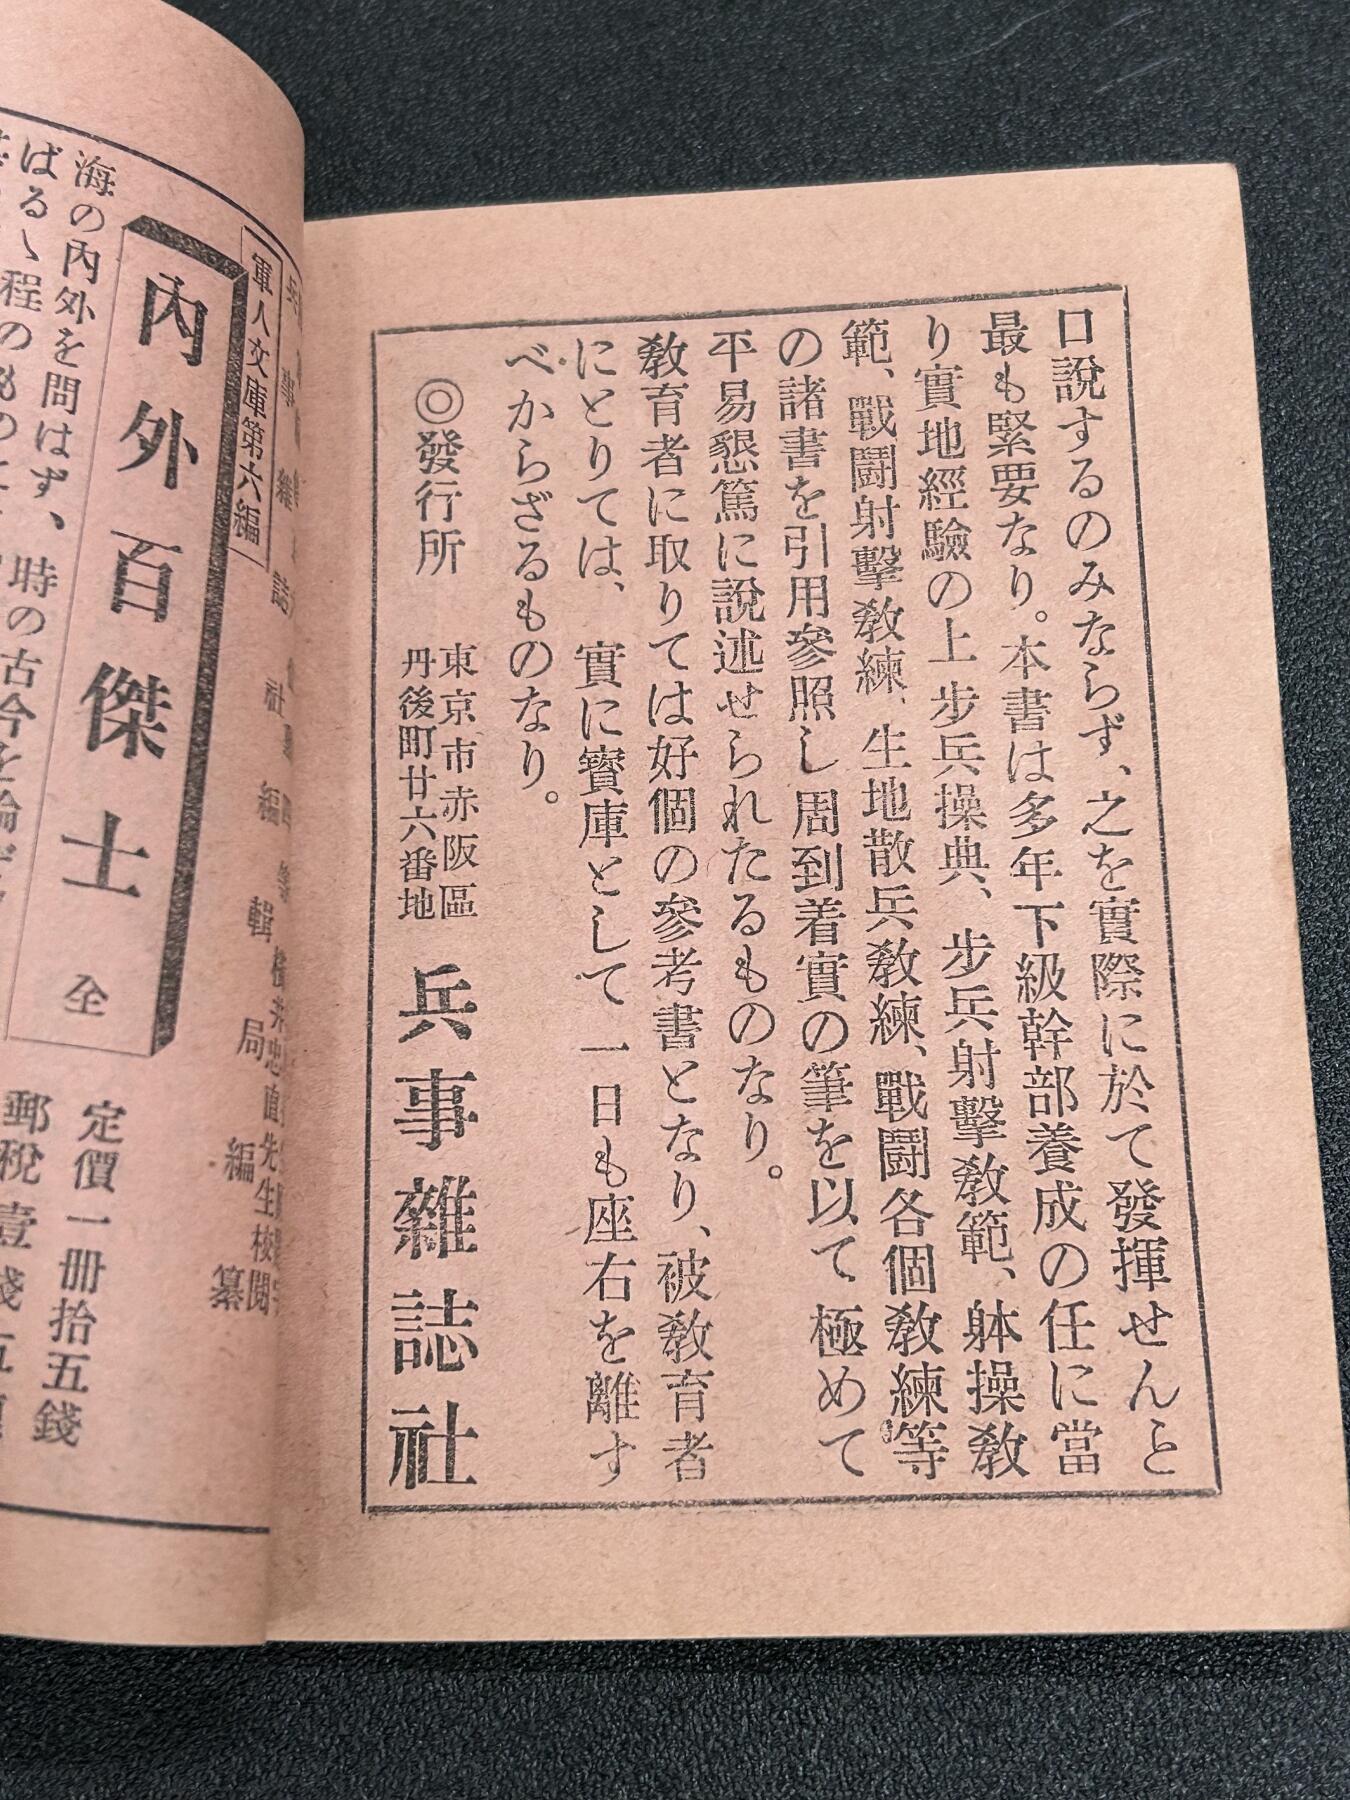 口說するのみならず、之を實際に於て發揮せんと
最も緊要なり。本書は多年下級幹部養成の任に當
り實地經驗の上步兵操典、步兵射擊敎範、躰操敎
範、戰鬪射擊敎練、生地散兵敎練、戰鬪各個敎練等
の諸書を引用參照し周到着實の筆を以て極めて
平易懇篤に說述せられたるものなり。
敎育者に取りては好個の參考書となり、被敎育者
にとりては、實に寶庫として一日も座右を離す
べからざるものなり。
◎發行所
東京市赤阪區
丹後町廿六番地
兵事雜誌社
先生校閱
誌社編輯局編纂
軍人文庫第六編
內外百傑士 全
定價一冊拾五錢
郵稅壹錢五
海の內外を問はず、時の古今を論
ばるゝ程のもの